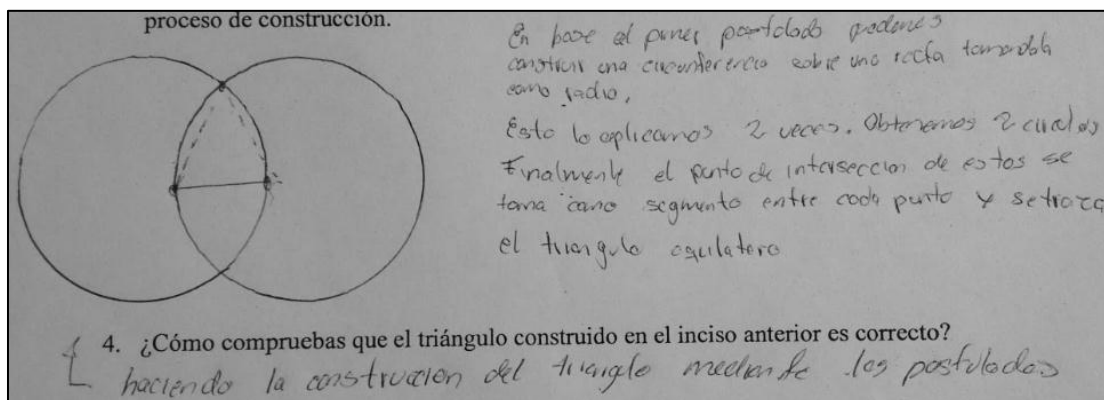 proceso de construcción.
En base al primer postulado podemos
construir una circunferencia sobre una recta tomandola
como radio.
Esto lo aplicamos 2 veces. Obtenemos 2 circulos
Finalmente el punto de interseccion de estos se
toma como segmento entre cada punto y se traza
el triangulo equilatero
4. ¿Cómo compruebas que el triángulo construido en el inciso anterior es correcto?
haciendo la construccion del triangulo mediante los postulados